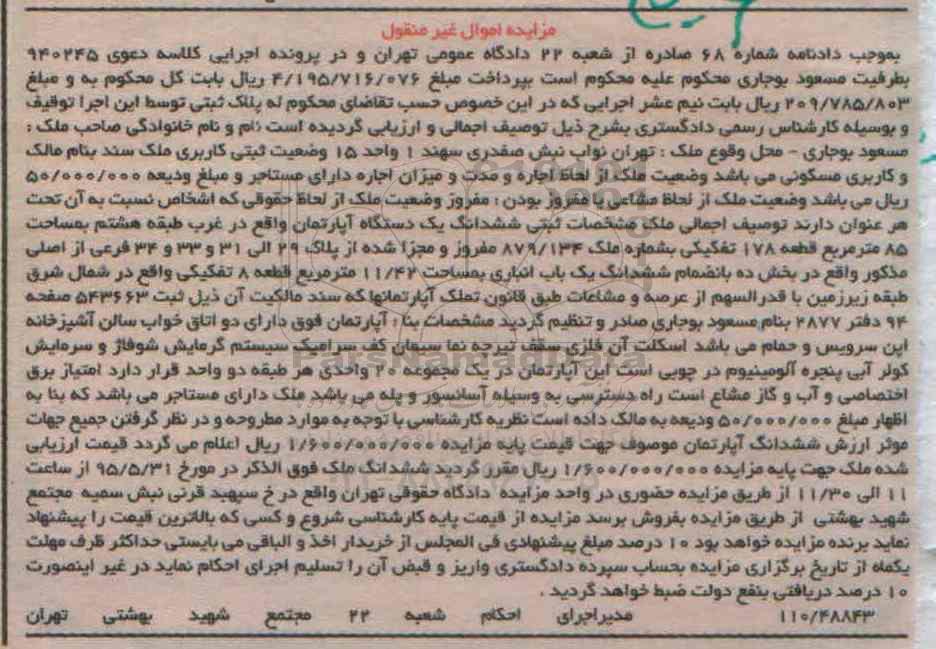 مزایده اموال غیر منقول
بموجب دادنامه شماره ۶۸ صادره از شعبه ۲۲ دادگاه عمومی تهران و در پرونده اجرایی کلاسه دعوی ۹۴۰۲۴۵
بطرفیت مسعود بوجاری محکوم علیه محکوم است بپرداخت مبلغ ۴/۱۹۵/۷۱۶/۰۷۶ ریال بابت کل محکوم به و مبلغ
۲۰۹/۷۸۵/۸۰۳ ریال بابت نیم عشر اجرایی که در این خصوص حسب تقاضای محکوم له پلاک ثبتی توسط این اجرا توقیف
و بوسیله کارشناس رسمی دادگستری بشرح ذیل توصیف اجمالی و ارزیابی گردیده است نام و نام خانوادگی صاحب ملک :
مسعود بوجاری - محل وقوع ملک : تهران نواب نبش صفدری سهند ۱ واحد ۱۵ وضعیت ثبتی کاربری ملک سند بنام مالک
و کاربری مسکونی می باشد وضعیت ملک از لحاظ اجاره و مدت و میزان اجاره دارای مستاجر و مبلغ ودیعه ۵۰/۰۰۰/۰۰۰
ریال می باشد وضعیت ملک از لحاظ مشاعی یا مفروز بودن : مفروز وضعیت ملک از لحاظ حقوقی که اشخاص نسبت به آن تحت
هر عنوان دارند توصیف اجمالی ملک مشخصات ثبتی ششدانگ یک دستگاه آپارتمان واقع در غرب طبقه هشتم بمساحت
۸۵ مترمربع قطعه ۱۷۸ تفکیکی بشماره ملک ۸۷۹/۱۳۴ مفروز و مجزا شده از پلاک ۲۹ الی ۳۱ و ۳۳ و ۳۴ فرعی از اصلی
مذکور واقع در بخش ده بانضمام ششدانگ یک باب انباری بمساحت ۱۱/۴۲ مترمربع قطعه ۸ تفکیکی واقع در شمال شرق
طبقه زیرزمین با قدرالسهم از عرصه و مشاعات طبق قانون تملک آپارتمانها که سند مالکیت آن ذیل ثبت ۵۴۳۶۶۳ صفحه
۹۴ دفتر ۲۸۷۷ بنام مسعود بوجاری صادر و تنظیم گردید مشخصات بنا : آپارتمان فوق دارای دو اتاق خواب سالن آشپزخانه
اپن سرویس و حمام می باشد اسکلت آن فلزی سقف تیرچه نما سیمان کف سرامیک سیستم گرمایش شوفاژ و سرمایش
کولر آبی پنجره آلومینیوم در چوبی است این آپارتمان در یک مجموعه ۲۰ واحدی هر طبقه دو واحد قرار دارد امتیاز برق
اختصاصی و آب و گاز مشاع است راه دسترسی به وسیله آسانسور و پله می باشد ملک دارای مستاجر می باشد که بنا به
اظهار مبلغ ۵۰/۰۰۰/۰۰۰ ودیعه به مالک داده است نظریه کارشناسی با توجه به موارد مطروحه و در نظر گرفتن جمیع جهات
موثر ارزش ششدانگ آپارتمان موصوف جهت قیمت پایه مزایده ۱/۶۰۰/۰۰۰/۰۰۰ ریال اعلام می گردد قیمت ارزیابی
شده ملک جهت پایه مزایده ۱/۶۰۰/۰۰۰/۰۰۰ ریال مقرر گردید ششدانگ ملک فوق الذکر در مورخ ۹۵/۵/۳۱ از ساعت
۱۱ الی ۱۱/۳۰ از طریق مزایده حضوری در واحد مزایده دادگاه حقوقی تهران واقع در خ سپهبد قرنی نبش سمیه مجتمع
شهید بهشتی از طریق مزایده بفروش برسد مزایده از قیمت پایه کارشناسی شروع و کسی که بالاترین قیمت را پیشنهاد
نماید برنده مزایده خواهد بود ۱۰ درصد مبلغ پیشنهادی فی المجلس از خریدار اخذ و الباقی می بایستی حداکثر ظرف مهلت
یکماه از تاریخ برگزاری مزایده بحساب سپرده دادگستری واریز و قبض آن را تسلیم اجرای احکام نماید در غیر اینصورت
۱۰ درصد دریافتی بنفع دولت ضبط خواهد گردید .
۱۱۰/۴۸۸۴۳ مدیراجرای احکام شعبه ۲۲ مجتمع شهید بهشتی تهران
ParsNamadData